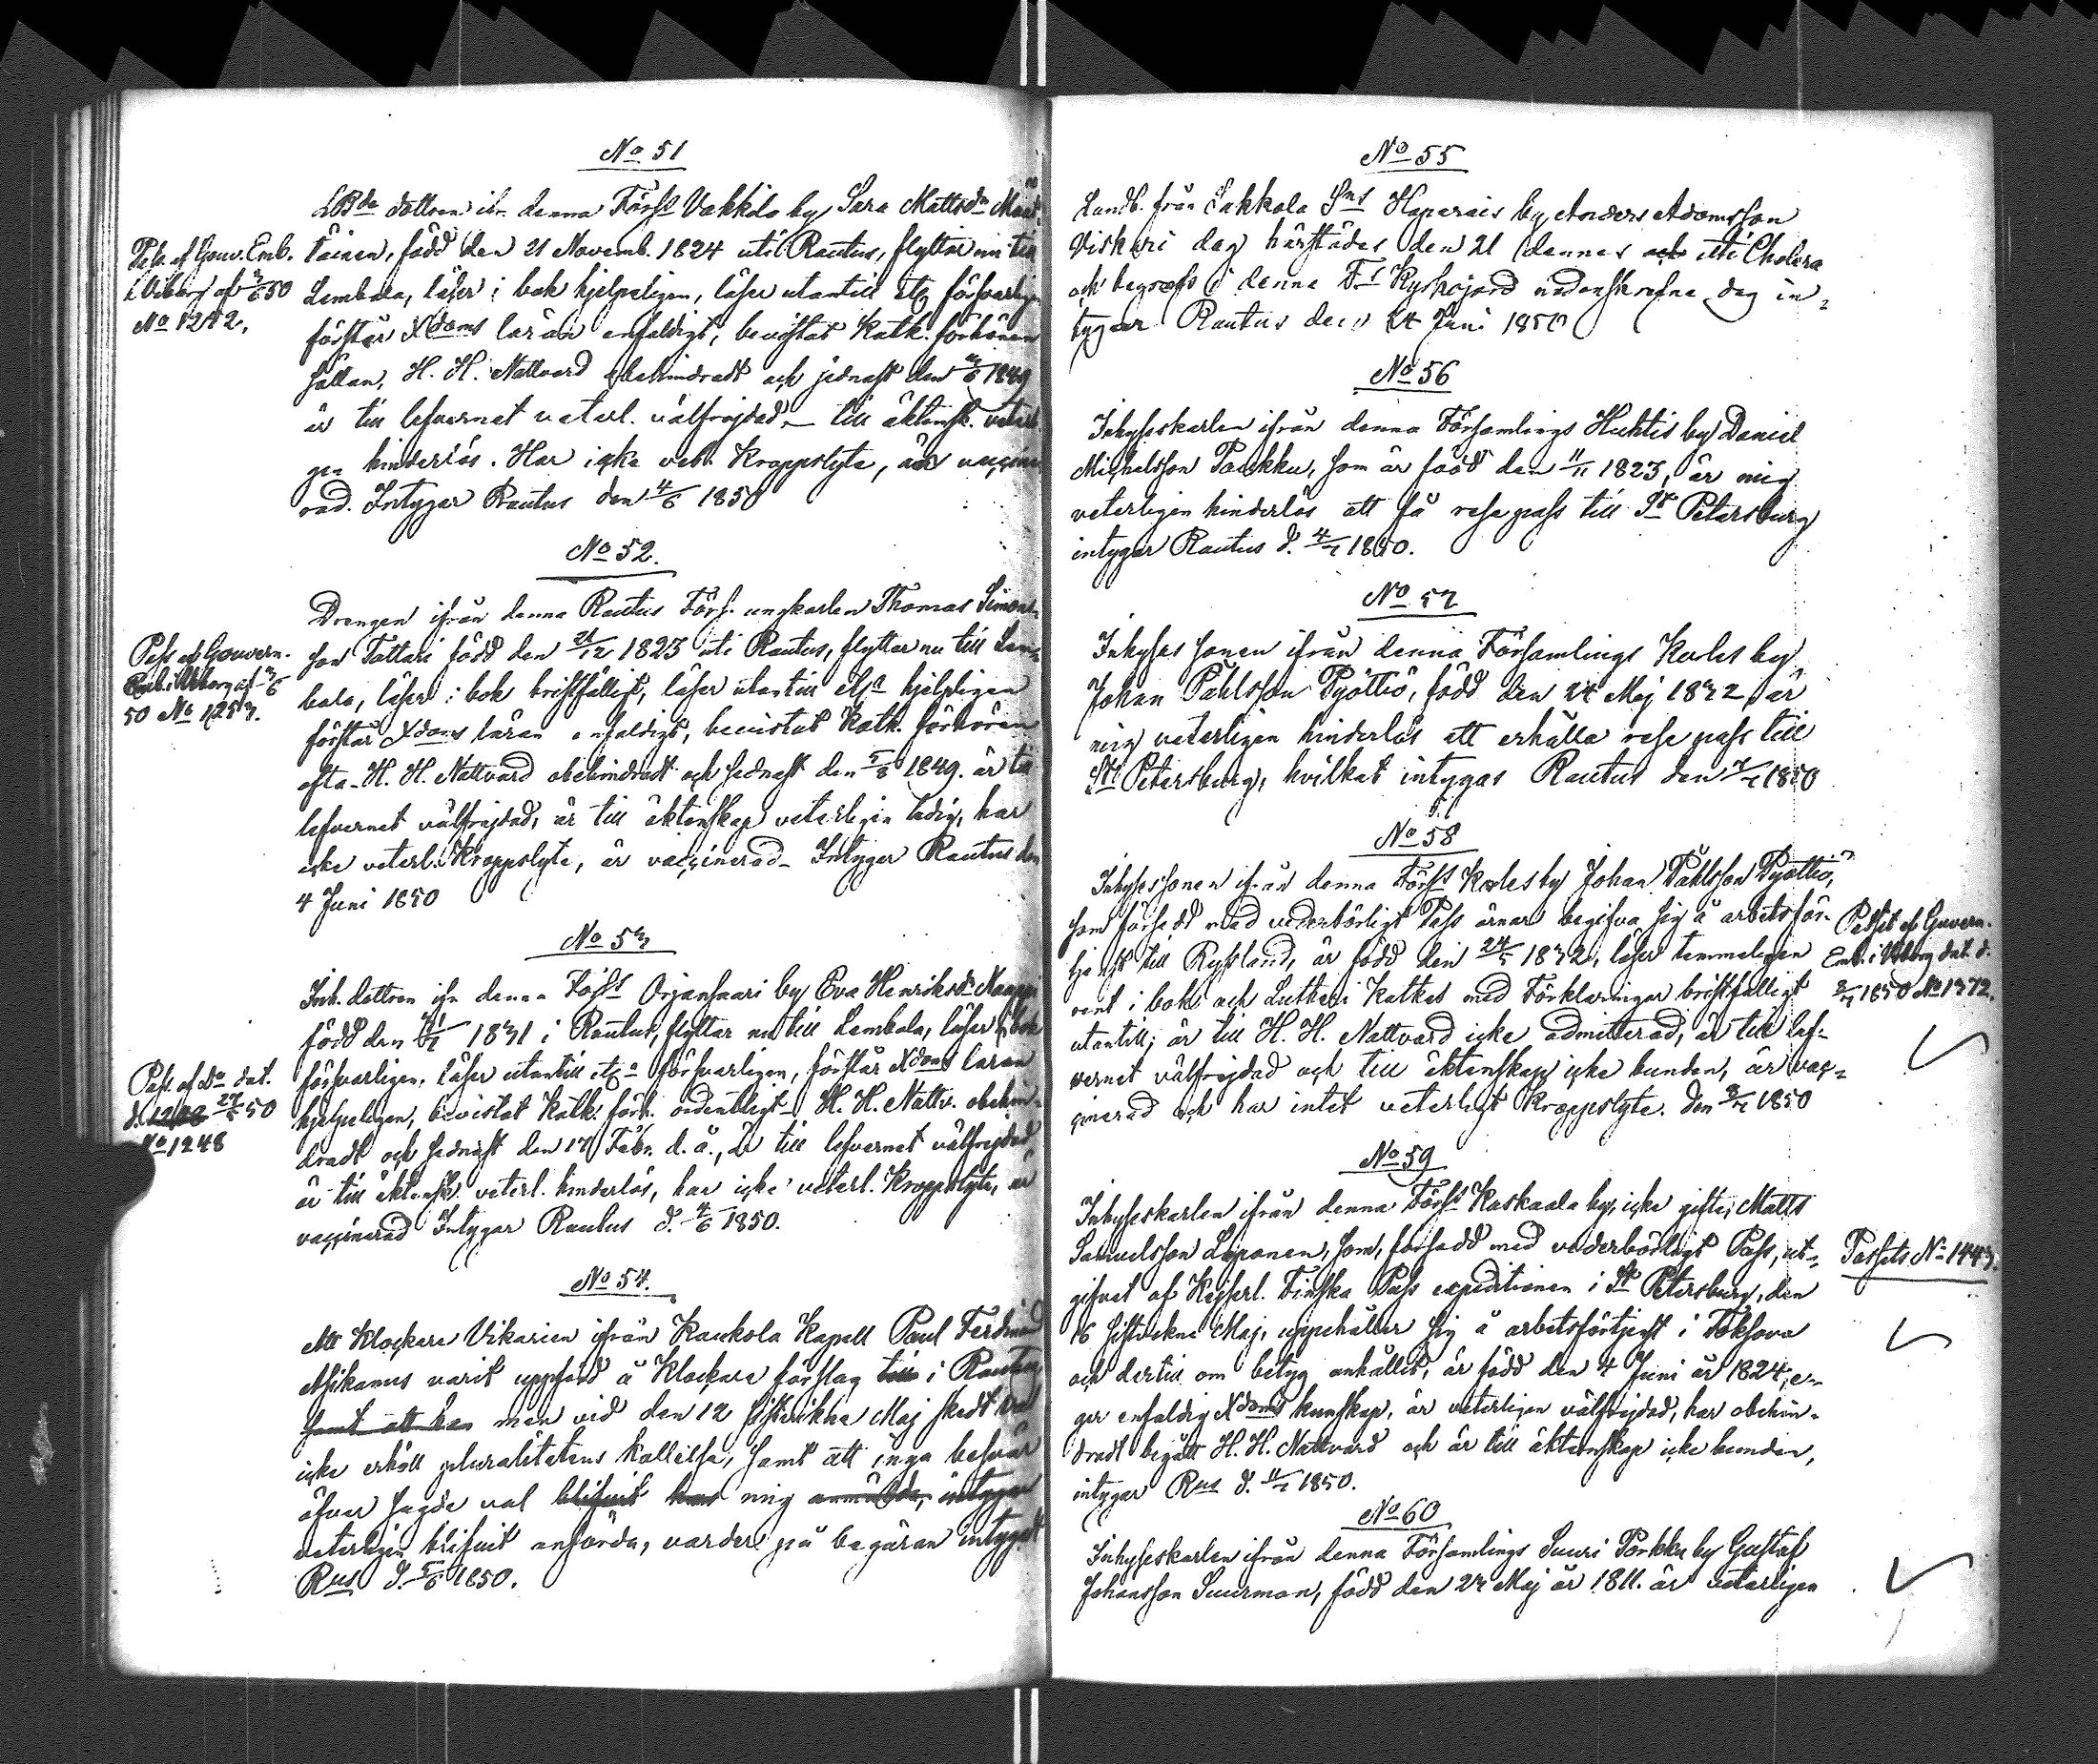 No 51
LBde dottren ifr. denna Förs:s Vakkila by Sara Mattsdr
täinen, född den 21 Novemb. 1824 uti Rautus, flyttar nu till
Lembala, läser i bok hjelpeligen, läser utantill etc försvarligen
förstår Xdoms läran enfaldigt, bevistat Katk. förhören
sällan, H. H. Nattvard obehindradt och sednast den 1849
är till lefvernet veterl. välfrejdad – till äktensk. veterl.
gen hinderlös. Har icke vet. Kroppslyte, är vaccine
rad. Intygar Rautus den 4/6 1850
Pass af Gouv. Emb.
i Viborg af 3/6 50
No 1242.
No 52.
Drengen ifrån denna Rautus Förs. ungkarlen Thomas Simons
son Tattari född den 21/12 1823 uti Rautus, flyttar nu till Lem
bala, läser i bok bristfälligt, läser utantill etca hjelpligen
förstår Xdoms läran enfaldigt, bevistat Katk. förhören
ofta – H. H. Nattvard obehindradt och sednast den 5/8 1849. är till
lefvernet välfrejdad, är till äktenskap veterligen ledig, har
icke veterl. Kroppslyte, är vaccinerad – Intygar Rautus den
4 Juni 1850
Pass af Gouvern.
Emb. i Viborg af 3/6
50 No 1253.
No 53
Inh. dottren ifr denna Förs:s Orjansaari by Eva Henriksdr
född den 1831 i Rautus, flyttar nu till Lembala, läser i bok
försvarligen, läser utantill etca försvarligen, förstår Xdoms läran
hjelpeligen, bevistat Katk. förh. ordentligt – H. H. Nattv. obehin-
dradt och sednast den 17 Febr. d. å., är till lefvernet välfrejdad
är till äktensk. veterl. hinderlös, har icke veterl. Kroppslyte, är
vaccinerad Intygar Rautus d. 4/6 1850.
Pass af Do dat.
d. 27/5 50
No 1248
No 54.
Att Klockare Vikarien ifrån Kaukola Kapell Paul Ferdinand
Asikanus varit uppförd å Klockare förslag till i Rautus,
samt att han men vid den 12 sistvikne Maj skedt val
icke erhöll pluralitetens kallelse, samt att inga besvär
öfver sagde val blifvit hos mig anmälda, intygar
veterligen blifvit anförda, varder på begäran intygadt
Rus d. 5/6 1850.
No 55
Landb. från Sakkola Sns Haparais by Anders Adamsson
Viskari dog härstädes den 21 dennes och uti Cholera
och begrofs i denna Fs Kyrkojord nedanskrefne dag in-
tygar Rautus den 24 Juni 1850
No 56
Inhyseskarlen ifrån denna Församlings Huhtis by Daniel
Michelsson Paukku, som är född den 11/11 1823, är mig
veterligen hinderlös att få resepass till St Petersburg
intygar Rautus d. 4/7 1850.
No 57
Inhyses sonen ifrån denna Församlings Kodes by
Johan Påhlsson Pyöttiö, född den 24 Maj 1832, är
mig veterligen hinderlös att erhålla rese pass till
St Petersburg, hvilket intygas Rautus den 7/7 1850
No 58
Inhysessonen ifrån denna Förs:s Kodesby Johan Påhlsson Pyöttiö,
som försedd med vederbörligt Pass ärnar begifva sig å arbetsför-
tjenst till Ryssland, är född den 24/5 1832, läser temmeligen
rent i bok och Lutheri Katkes med Förklaringar bristfälligt
utantill; är till H. H. Nattvard icke admitterad, är till lef-
vernet välfrejdad och till äktenskap icke bunden, är vac-
cinerad och har intet veterligt Kroppslyte. den 9/7 1850
Passet af Guvern.
Emb. i Viborg dat. d.
1850 No 1372.
No 59
Inhyseskarlen ifrån denna Förs:s Kaskaala by, icke gifte, Matts
Samuelsson Loponen, som, försedd med vederbörligt Pass, ut-
gifvet af Kejserl. Finska Pass expeditionen i St Petersburg, den
16 sistvikne Maj, uppehåller sig å arbetsförtjenst i Toksova
och dertill om betyg anhållit, är född den 4 Juni år 1824, e-
ger enfaldig Xdoms kunskap, är veterligen välfrejdad, har obehin-
dradt begått H. H. Nattvard och är till äktenskap icke bunden,
intygar Rus d. 11/7 1850.
Passets No 1443.
No 60
Inhyseskarlen ifrån denna Församlings Suuri Porkku by Gustaf
Johansson Suurman, född den 27 Maj år 1811. är veterligen